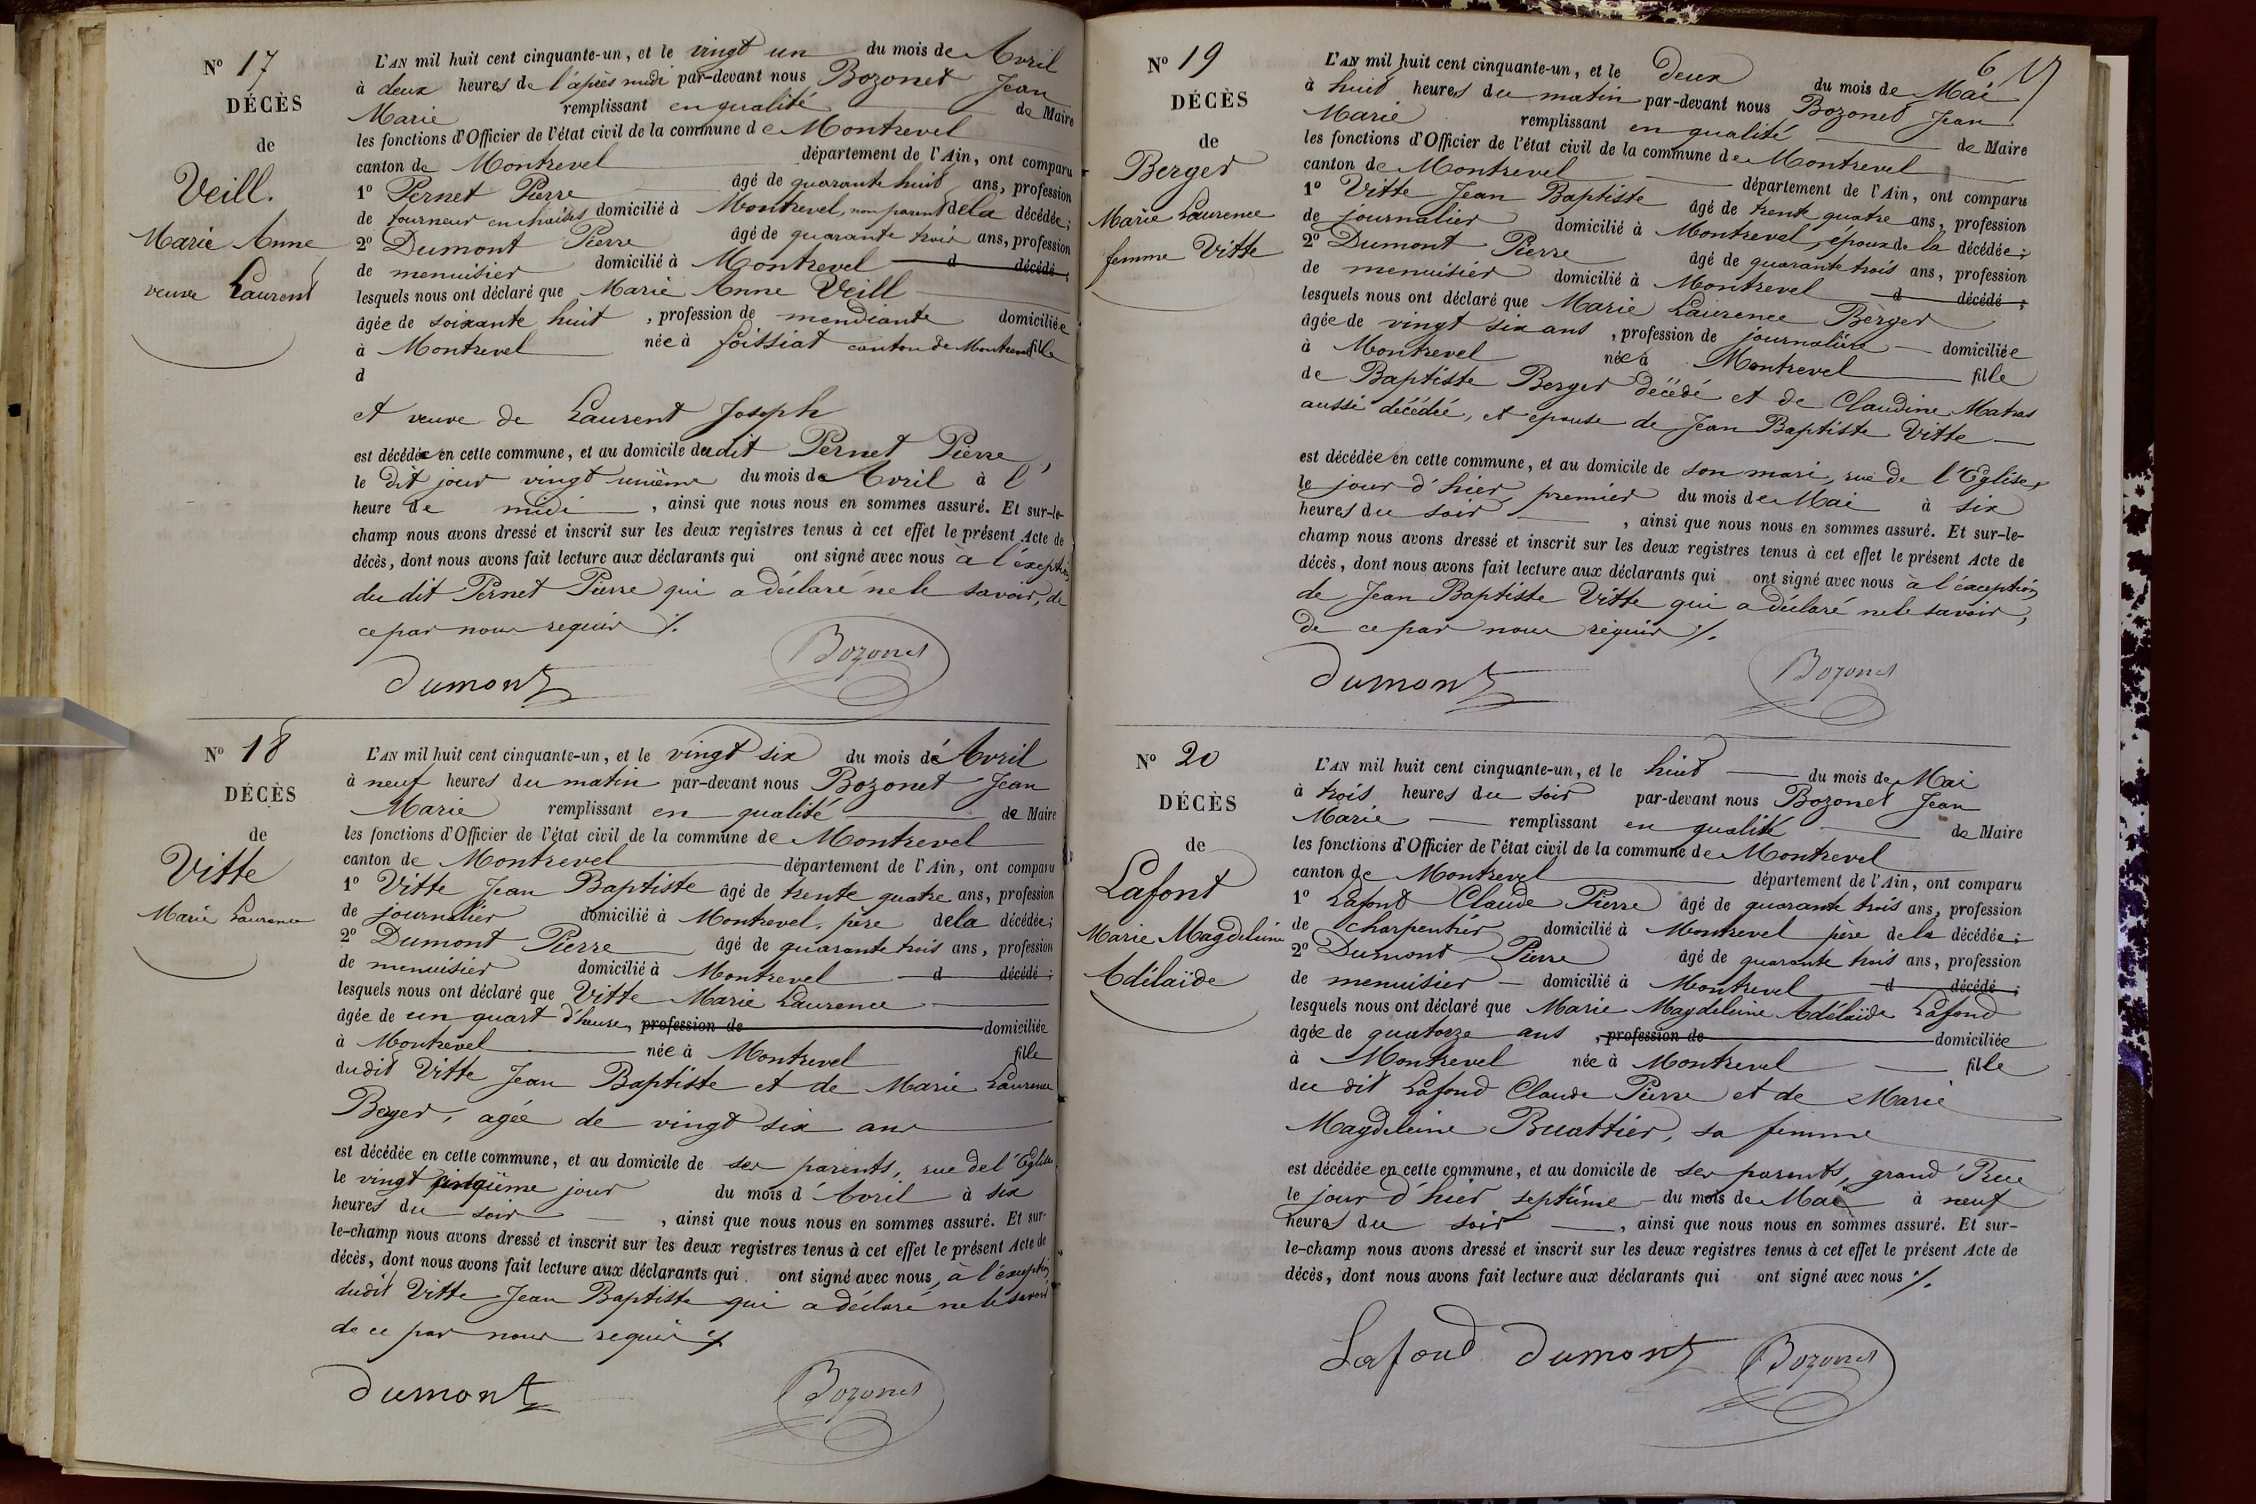 Nº 17
DÉCÈS
de
Veill.
Marie Anne
veuve Laurent
L'AN mil huit cent cinquante-un, et le vingt un du mois de Avril
à deux heures de l'après midi par-devant nous Bozonet Jean
Marie remplissant en qualité de Maire
les fonctions d'Officier de l'état civil de la commune de Montrevel
canton de Montrevel département de l'Ain, ont comparu
1º Pernet Pierre âgé de quarante huit ans, profession
de tourneur en chaises domicilié à Montrevel, non parent de la décédée;
2º Dumont Pierre âgé de quarante trois ans, profession
de menuisier domicilié à Montrevel d décédé ;
lesquels nous ont déclaré que Marie Anne Veill
âgée de soixante huit , profession de mendiante domiciliée
à Montrevel née à foissiat canton de Montrevel fille
d
et veuve de Laurent Joseph
est décédée en cette commune, et au domicile dudit Pernet Pierre,
le dit jour vingt unième du mois de Avril à l'
heure de midi , ainsi que nous nous en sommes assuré. Et sur-le-
champ nous avons dressé et inscrit sur les deux registres tenus à cet effet le présent Acte de
décès, dont nous avons fait lecture aux déclarants qui ont signé avec nous à l'exception
du dit Pernet Pierre qui a déclaré ne le savoir, de
ce par nous requis ./.
Dumont Bozonet
Nº 18
DÉCÈS
de
Vitte
Marie Laurence
L'AN mil huit cent cinquante-un, et le vingt six du mois dé Avril
à neuf heures du matin par-devant nous Bozonet Jean
Marie remplissant en qualité de Maire
les fonctions d'Officier de l'état civil de la commune de Montrevel
canton de Montrevel département de l'Ain, ont comparu
1º Vitte Jean Baptiste âgé de trente quatre ans, profession
de journalier domicilié à Montrevel, père de la décédée;
2º Dumont Pierre âgé de quarante trois ans, profession
de menuisier domicilié à Montrevel d décédé ;
lesquels nous ont déclaré que Vitte Marie Laurence
âgée de un quart d'heure, profession de domiciliée
à Montrevel née à Montrevel fille
dudit Vitte Jean Baptiste et de Marie Laurence
Berger, agée de vingt six ans
est décédée en cette commune, et au domicile de ses parents, rue de l'Eglise,
le vingt cinquième jour du mois d'Avril à six
heures du soir , ainsi que nous nous en sommes assuré. Et sur-
le-champ nous avons dressé et inscrit sur les deux registres tenus à cet effet le présent Acte de
décès, dont nous avons fait lecture aux déclarants qui ont signé avec nous, à l'exception
dudit Vitte Jean Baptiste qui a déclaré ne le savoir
de ce par nous requis ./.
Dumont Bozonet
6
Nº 19
DÉCÈS
de
Berger
Marie Laurence
femme Vitte
L'AN mil huit cent cinquante-un, et le deux du mois de Mai
à huit heures du matin par-devant nous Bozonet Jean
Marie remplissant en qualité de Maire
les fonctions d'Officier de l'état civil de la commune de Montrevel
canton de Montrevel département de l'Ain, ont comparu
1º Vitte Jean Baptiste âgé de trente quatre ans, profession
de journalier domicilié à Montrevel, époux de la décédée;
2º Dumont Pierre âgé de quarante trois ans, profession
de menuisier domicilié à Montrevel d décédé ;
lesquels nous ont déclaré que Marie Laurence Berger
âgée de vingt six ans , profession de journalière domiciliée
à Montrevel née à Montrevel fille
de Baptiste Berger décédé et de Claudine Matras
aussi décédée, et épouse de Jean Baptiste Vitte
est décédée en cette commune, et au domicile de son mari, rue de l'Eglise,
le jour d'hier, premier du mois de Mai à six
heures du soir , ainsi que nous nous en sommes assuré. Et sur-le-
champ nous avons dressé et inscrit sur les deux registres tenus à cet effet le présent Acte de
décès, dont nous avons fait lecture aux déclarants qui ont signé avec nous à l'exception
de Jean Baptiste Vitte qui a déclaré ne le savoir,
de ce par nous requis ./.
Dumont Bozonet
Nº 20
DÉCÈS
de
Lafont
Marie Magdeleine
Adélaïde
L'AN mil huit cent cinquante-un, et le huit du mois de Mai
à trois heures du soir par-devant nous Bozonet Jean
Marie remplissant en qualité de Maire
les fonctions d'Officier de l'état civil de la commune de Montrevel
canton de Montrevel département de l'Ain, ont comparu
1º Lafont Claude Pierre âgé de quarante trois ans, profession
de charpentier domicilié à Montrevel père de la décédée;
2º Dumont Pierre âgé de quarante trois ans, profession
de menuisier domicilié à Montrevel d décédé ;
lesquels nous ont déclaré que Marie Magdeleine Adélaïde Lafond
âgée de quatorze ans , profession de domiciliée
à Montrevel née à Montrevel fille
du dit Lafond Claude Pierre et de Marie
Magdeleine Buattier, sa femme
est décédée en cette commune, et au domicile de ses parents, grand'Rue
le jour d'hier septième du mois de Mai à neuf
heures du soir , ainsi que nous nous en sommes assuré. Et sur-
le-champ nous avons dressé et inscrit sur les deux registres tenus à cet effet le présent Acte de
décès, dont nous avons fait lecture aux déclarants qui ont signé avec nous ./.
Lafond Dumont Bozonet